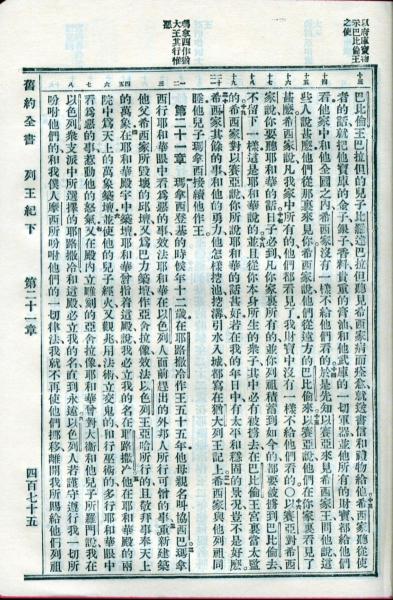 以府庫寶物
示巴比倫王
之使
瑪拿西作猶
大王其行惟
惡
巴比倫王巴拉但的兒子比羅達巴拉但聽見希西家病而痊愈就送書信和禮物給他希西家聽從使
者的話就把他寶庫的金子銀子香料貴重的膏油和他武庫的一切軍器並他所有的財寶都給他們
看他家中和他全國之內希西家沒有一樣不給他們看的於是先知以賽亞來見希西家王問他說這
些人說甚麼他們從那裏來見你希西家說他們從遠方的巴比倫來以賽亞說他們在你家裏看見了
甚麼希西家說凡我家中所有的他們都看見了我財寶中沒有一樣不給他們看的○以賽亞對希西
家說你要聽耶和華的話日子必到凡你家裏所有的並你列祖積蓄到如今的都要被擄到巴比倫去
不留下一樣這是耶和華說的並且從你本身所生的衆子其中必有被擄去在巴比倫王宮裏當太監
的希西家對以賽亞說你所說耶和華的話甚好若在我的年日中有太平和穩固的景況豈不是好麼
希西家其餘的事和他的勇力他怎樣挖池挖溝引水入城都寫在猶大列王記上希西家與他列祖同
睡他兒子瑪拿西接續他作王
第二十一章 瑪拿西登基的時候年十二歲在耶路撒冷作王五十五年他母親名叫協西巴瑪拿
西行耶和華眼中看爲惡的事效法耶和華在以色列人面前趕出的外邦人所行可憎的事重新建築
他父希西家所毀壞的邱壇又爲巴力築壇作亞舍拉像效法以色列王亞哈所行的且敬拜事奉天上
的萬象在耶和華殿宇中築壇耶和華曾指着這殿說我必立我的名在耶路撒冷他在耶和華殿的兩
院中爲天上的萬象築壇並使他的兒子經火又觀兆用法術立交鬼的和行巫術的多行耶和華眼中
看爲惡的事惹動他的怒氣又在殿內立雕刻的亞舍拉像耶和華曾對大衛和他兒子所羅門說我在
以色列衆支派中所選擇的耶路撒冷和這殿必立我的名直到永遠以色列人若謹守遵行我一切所
吩咐他們的和我僕人摩西所吩咐他們的一切律法我就不再使他們挪移離開我所賜給他們列祖
舊約全書 列王紀下 第二十一章 四百七十五